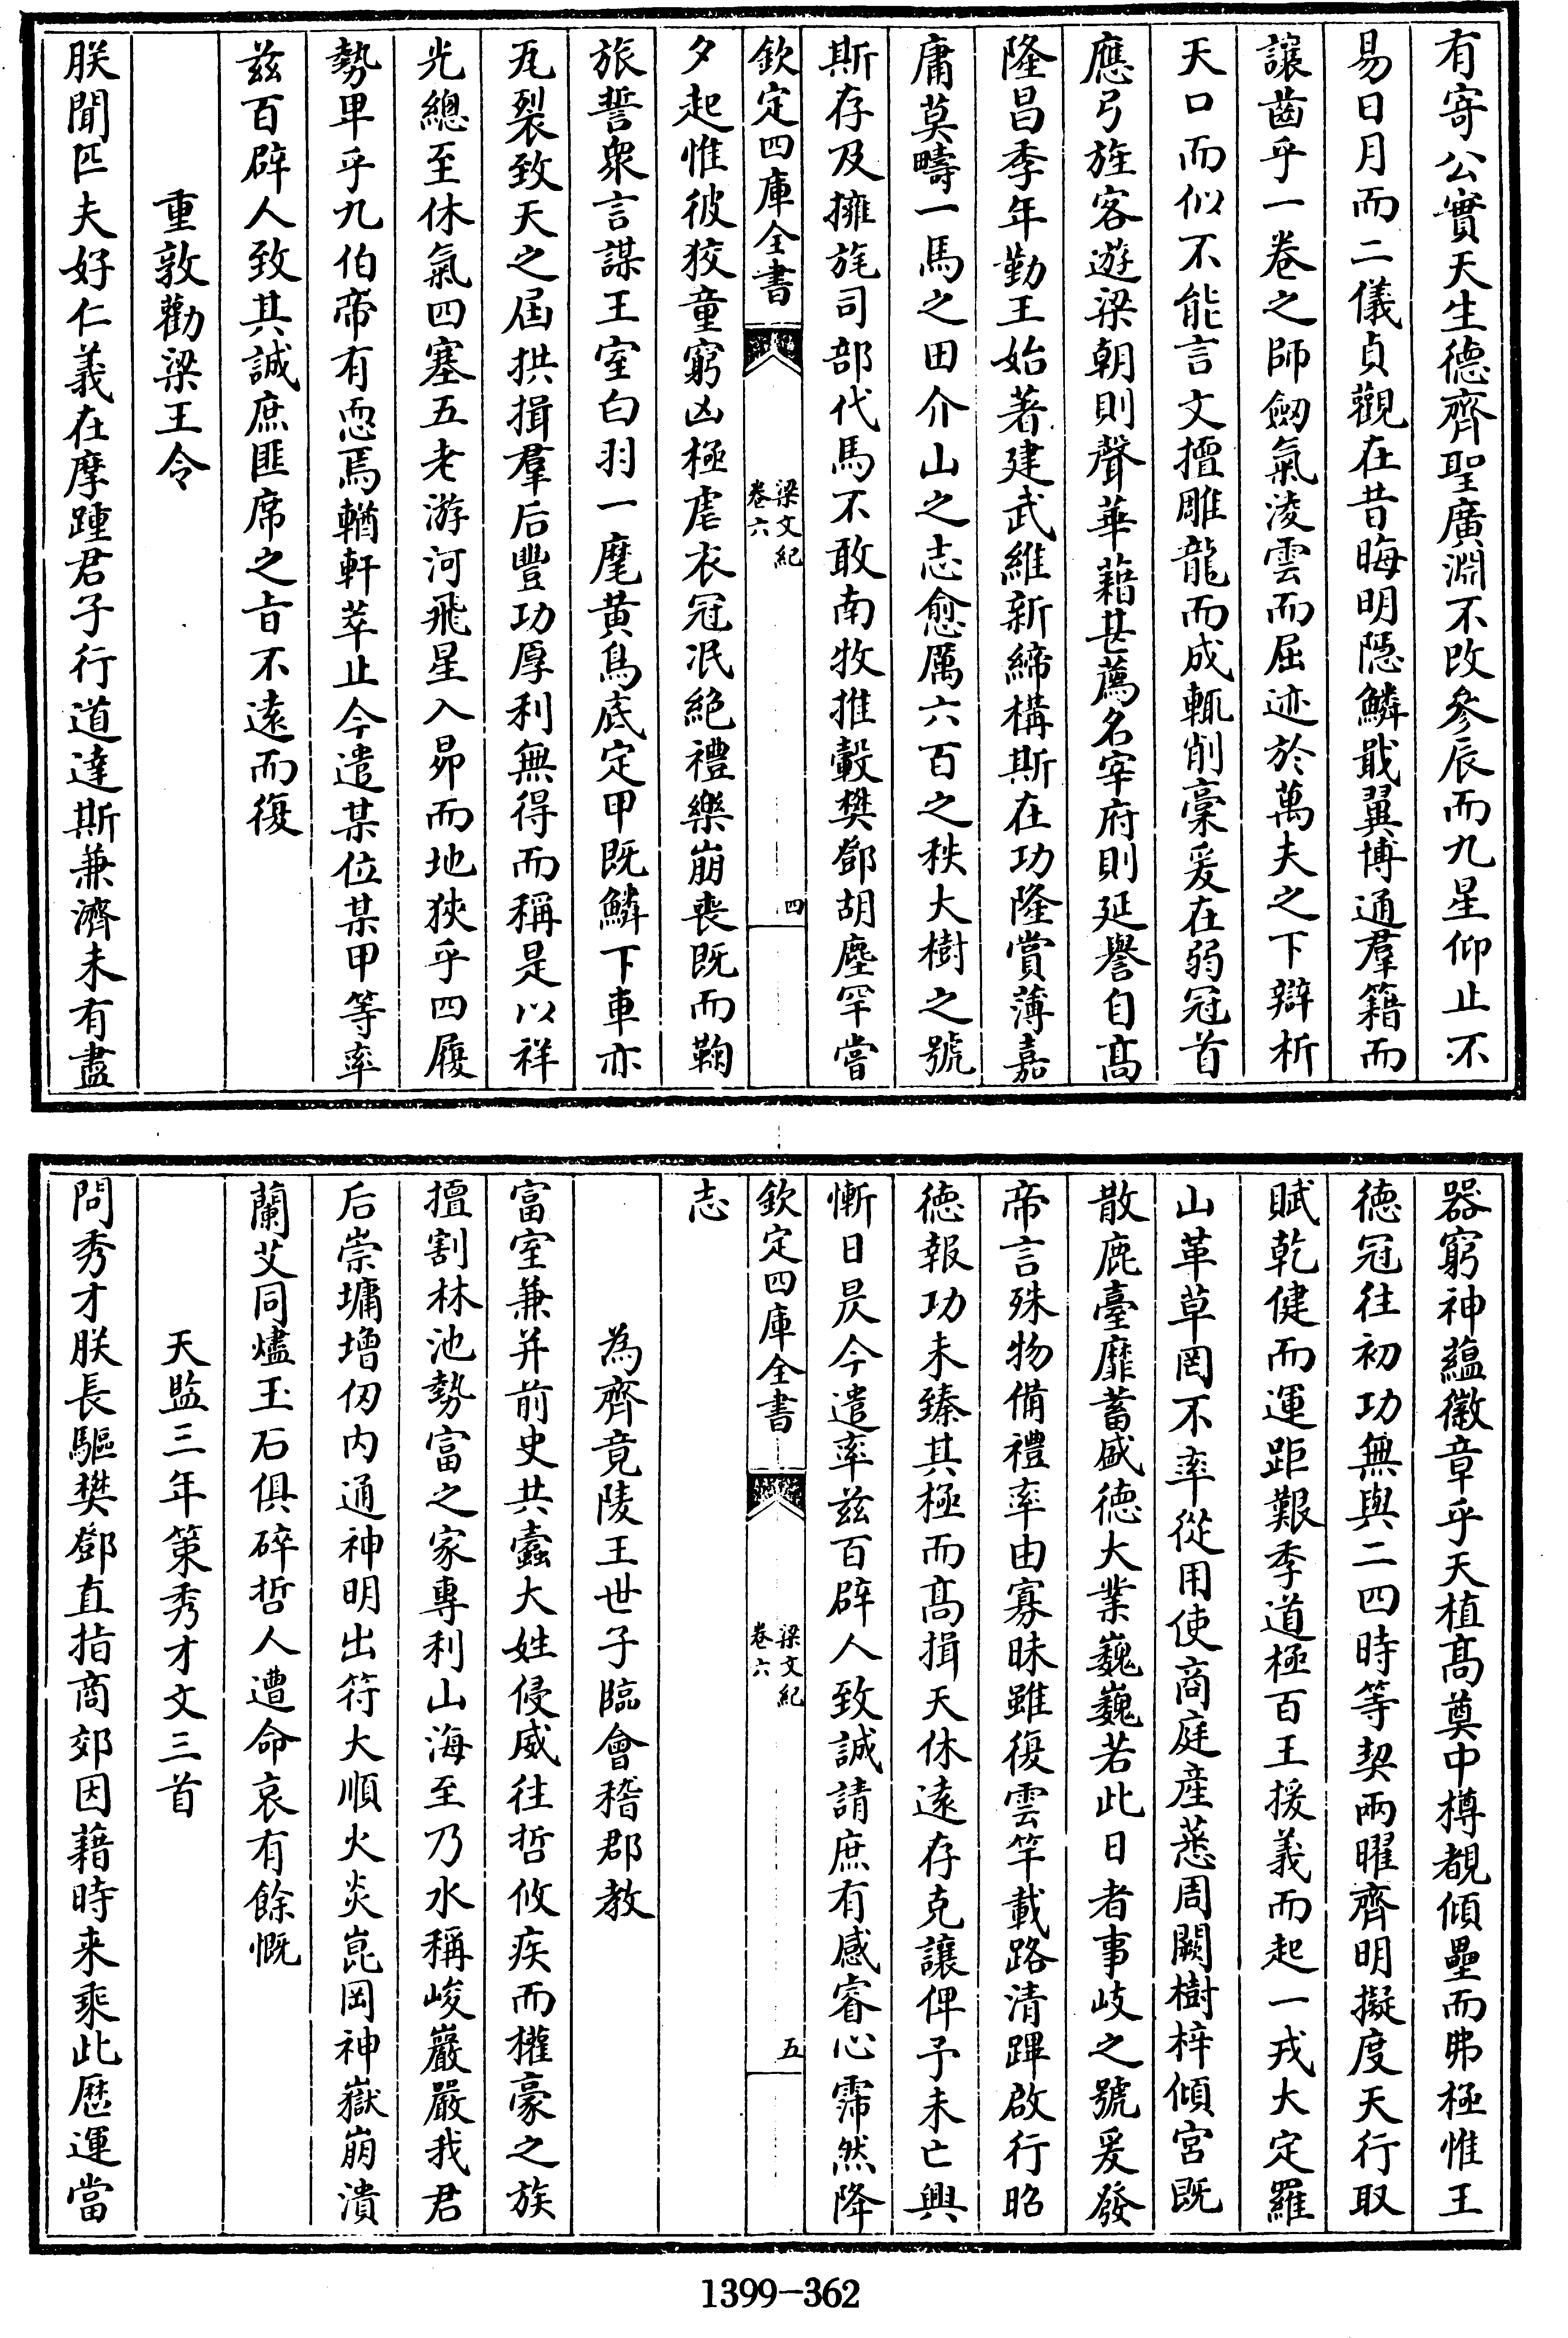 有寄公實天生德齊聖廣淵不改參辰而九星仰止不
易日月而二儀貞觀在昔晦明隠鱗戢翼博通羣籍而
讓齒乎一卷之師劔氣凌雲而屈迹於萬夫之下辯析
天口而似不能言文擅雕龍而成輒削稾爰在弱冠首
應弓旌客遊梁朝則聲華藉甚薦名宰府則延譽自髙
隆昌季年勤王始著建武維新締構斯在功隆賞薄嘉
庸莫疇一馬之田介山之志愈厲六百之秩大樹之號
斯存及擁旄司部代馬不敢南牧推轂樊鄧胡塵罕嘗
欽定四庫全書
梁文紀
卷六
四
夕起惟彼狡童窮凶極虐衣冠泯絶禮樂崩喪既而鞠
旅誓衆言謀王室白羽一麾黄鳥底定甲既鱗下車亦
瓦裂致天之屆拱揖羣后豐功厚利無得而稱是以祥
光總至休氣四塞五老游河飛星入昴而地狹乎四履
勢卑乎九伯帝有恧焉輶軒萃止今遣某位某甲等率
兹百辟人致其誠庶匪席之㫖不逺而復
重敦勸梁王令
朕聞匹夫好仁義在摩踵君子行道達斯兼濟未有盡
器窮神藴徽章乎天植髙奠中樽覩傾壘而弗極惟王
德冠往初功無與二四時等契兩曜齊明擬度天行取
賦乾健而運距艱季道極百王援義而起一戎大定羅
山革草罔不率從用使商庭産蒸周闕樹梓傾宮既
散鹿臺靡蓄盛德大業巍巍若此日者事岐之號爰發
帝言殊物備禮率由寡昧雖復雲竿載路清蹕啟行昭
德報功未臻其極而髙揖天休逺存克讓俾予未亡興
慚日昃今遣率兹百辟人致誠請庶有感睿心霈然降
欽定四庫全書
梁文紀
卷六
五
志
為齊竟陵王世子臨會稽郡教
富室兼并前史共蠧大姓侵威往哲攸疾而權豪之族
擅割林池勢富之家專利山海至乃水稱峻巖嚴我君
后崇墉増仞内通神明出符大順火炎崑岡神嶽崩潰
蘭艾同燼玉石俱碎哲人遭命哀有餘慨
天監三年策秀才文三首
問秀才朕長驅樊鄧直指商郊因藉時来乘此歴運當
1399-362